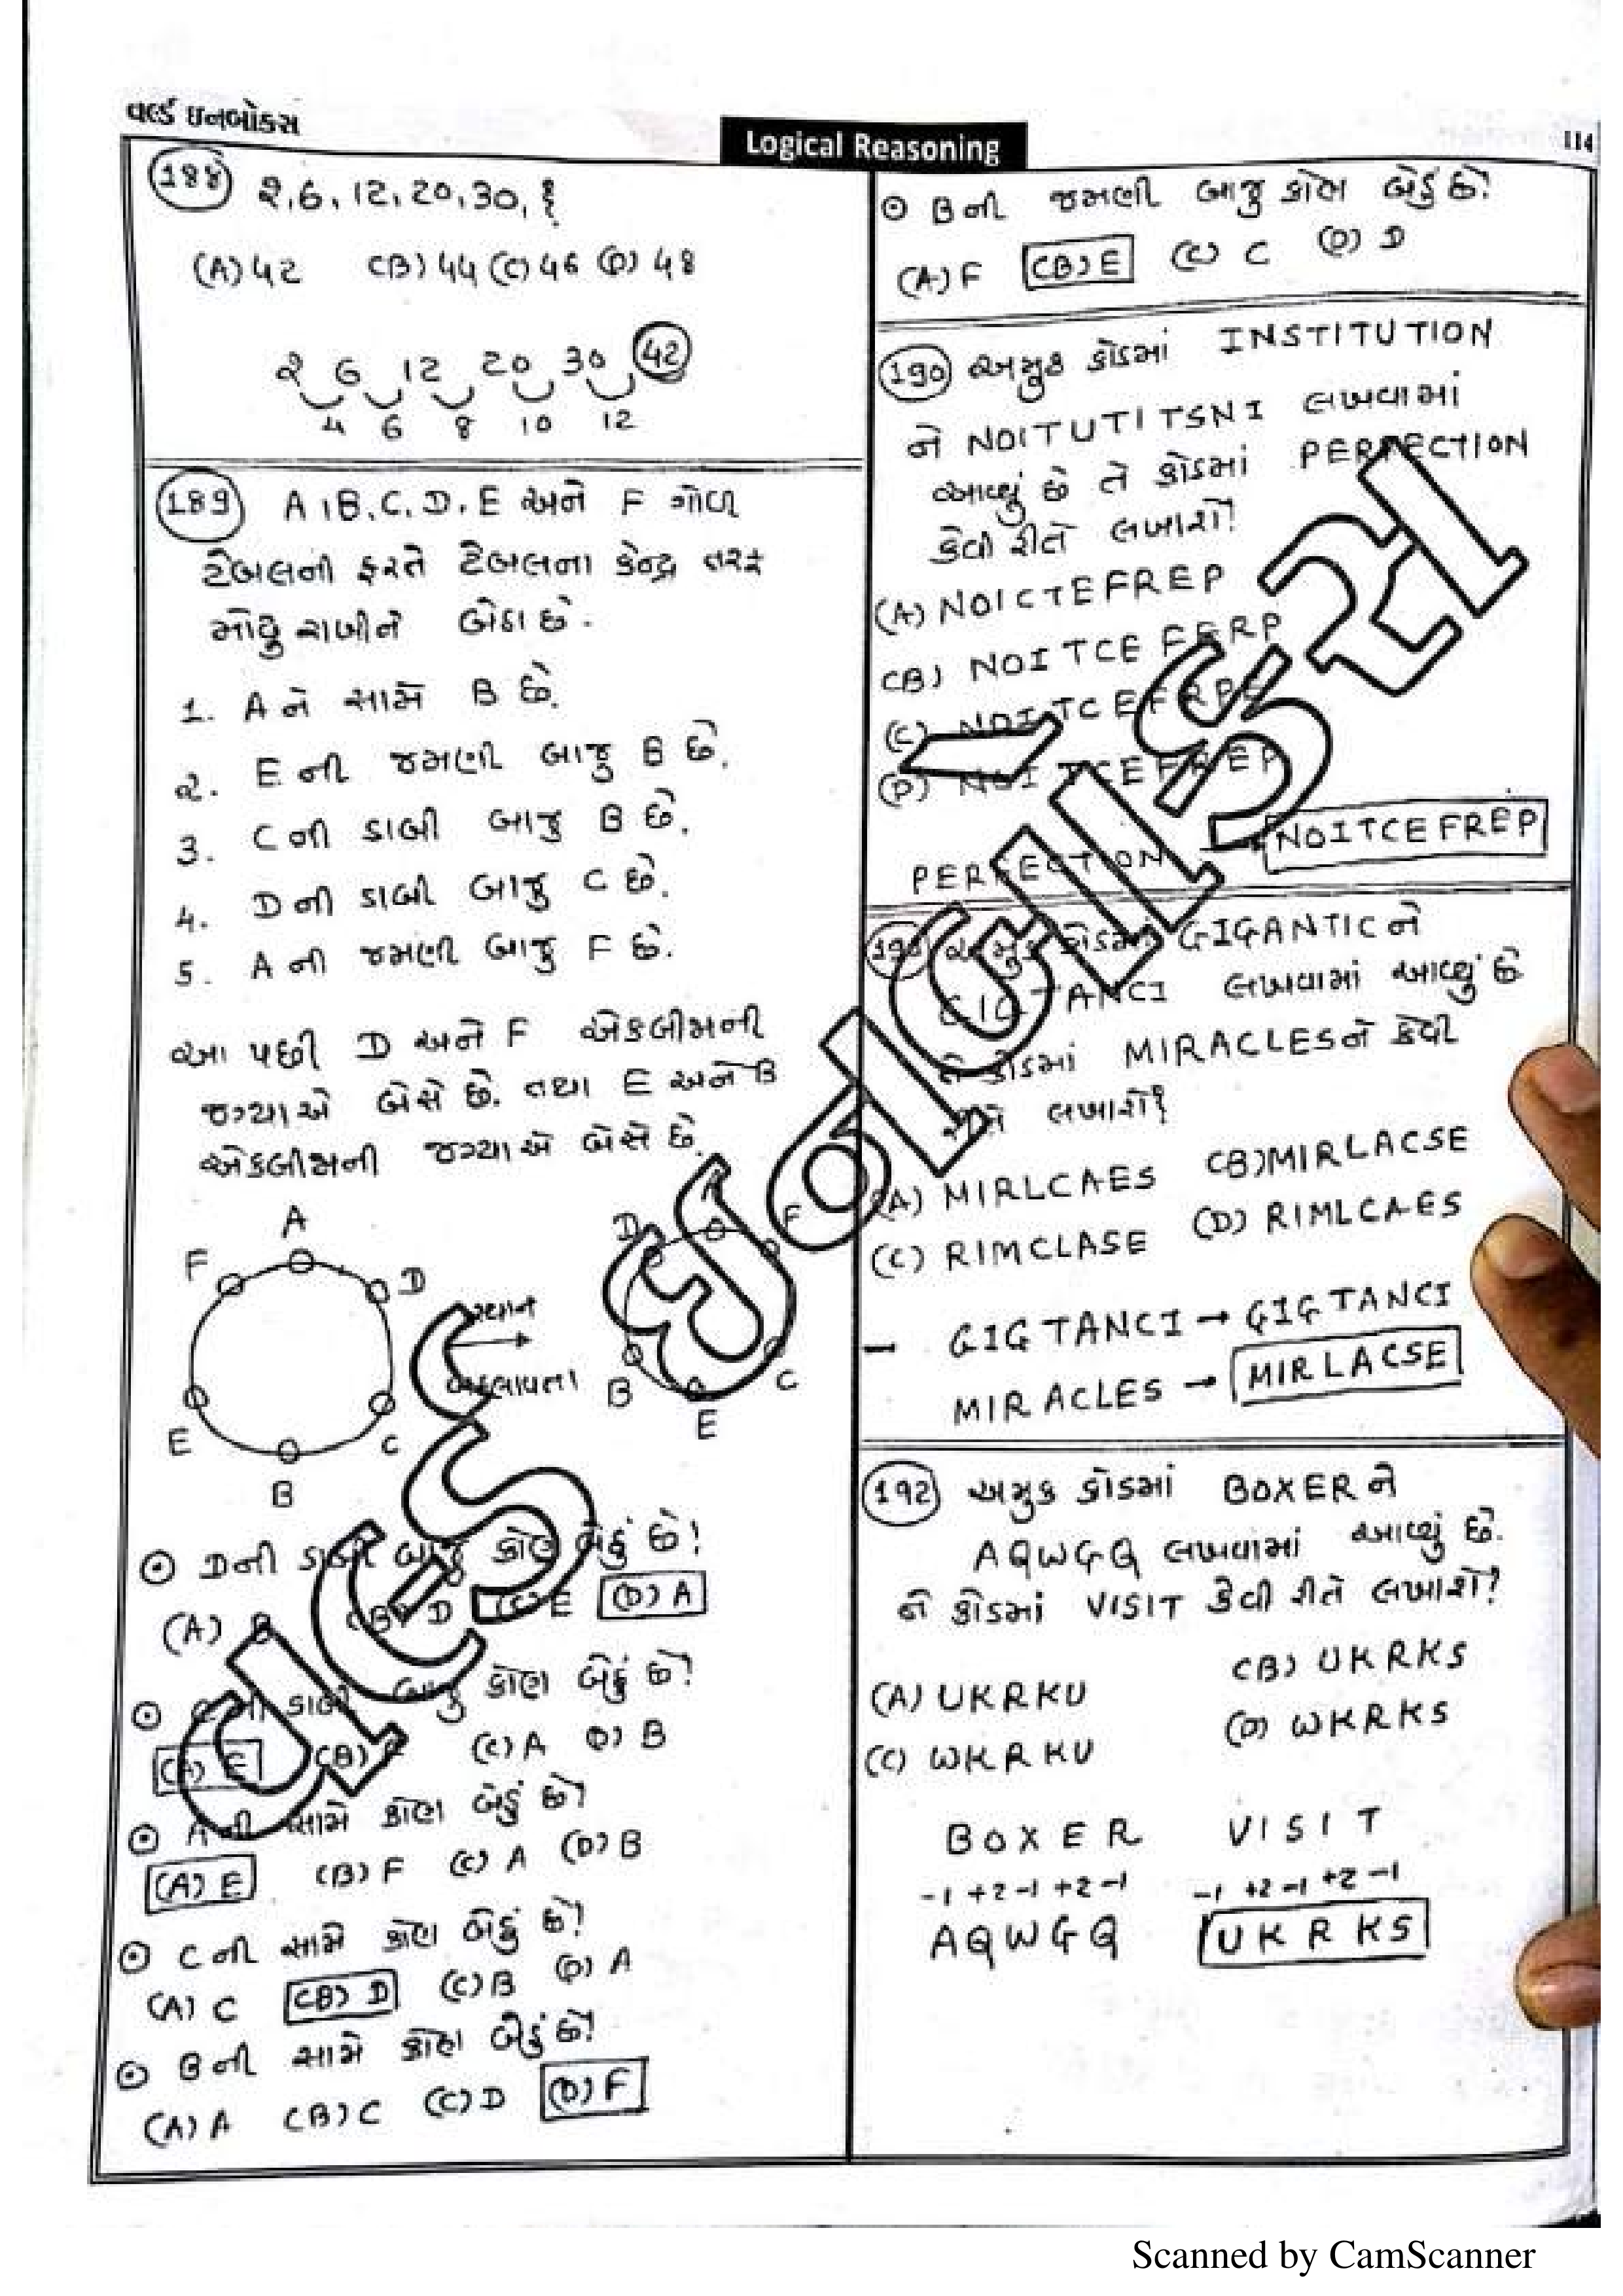 વર્લ્ડ ઇનબોક્સ
Logical Reasoning
114
188 2, 6, 12, 20, 30, ?
(A) 42 (B) 44 (C) 46 (D) 48
2 6 12 20 30 42
4 6 8 10 12
189 A, B, C, D, E અને F ગોળ
ટેબલની ફરતે ટેબલના કેન્દ્ર તરફ
મોઢુ રાખીને બેઠા છે.
1. A ને સામે B છે.
2. E ની જમણી બાજુ B છે.
3. C ની ડાબી બાજુ B છે.
4. D ની ડાબી બાજુ C છે.
5. A ની જમણી બાજુ F છે.
આ પછી D અને F એકબીજાની
જગ્યાએ બેસે છે. તથા E અને B
એકબીજાની જગ્યાએ બેસે છે.
A
F D
E C
B
સ્થાન
બદલાવતા
D A F
B C
E
⊙ D ની ડાબી બાજુ કોણ બેઠું છે?
(A) B (B) D (C) E (D) A
⊙ ડાબી બાજુ કોણ બેઠું છે?
(A) E (B) F (C) A (D) B
⊙ A ની સામે કોણ બેઠું છે?
(A) E (B) F (C) A (D) B
⊙ C ની સામે કોણ બેઠું છે?
(A) C (B) D (C) B (D) A
⊙ B ની સામે કોણ બેઠું છે?
(A) A (B) C (C) D (D) F
⊙ B ની જમણી બાજુ કોણ બેઠું છે?
(A) F (B) E (C) C (D) D
190 અમુક કોડમાં INSTITUTION
ને NOITUTITSNI લખવામાં
આવ્યું છે તે કોડમાં PERFECTION
કેવી રીતે લખાશે?
(A) NOICTEFREP
(B) NOITCEFERP
(C) NOITCEFRPE
(D) NOITCEFREP
PERFECTION → NOITCEFREP
191 અમુક કોડમાં GIGANTIC ને
GIGTANCI લખવામાં આવ્યું છે
તે કોડમાં MIRACLES ને કેવી
રીતે લખાશે?
(A) MIRLCAES (B) MIRLACSE
(C) RIMCLASE (D) RIMLCAES
– GIGTANCI → GIGTANCI
MIRACLES → MIRLACSE
192 અમુક કોડમાં BOXER ને
AQWGQ લખવામાં આવ્યું છે.
તે કોડમાં VISIT કેવી રીતે લખાશે?
(A) UKRKU (B) UKRKS
(C) WKRKU (D) WKRKS
BOXER VISIT
-1 +2 -1 +2 -1 -1 +2 -1 +2 -1
AQWGQ UKRKS
Scanned by CamScanner